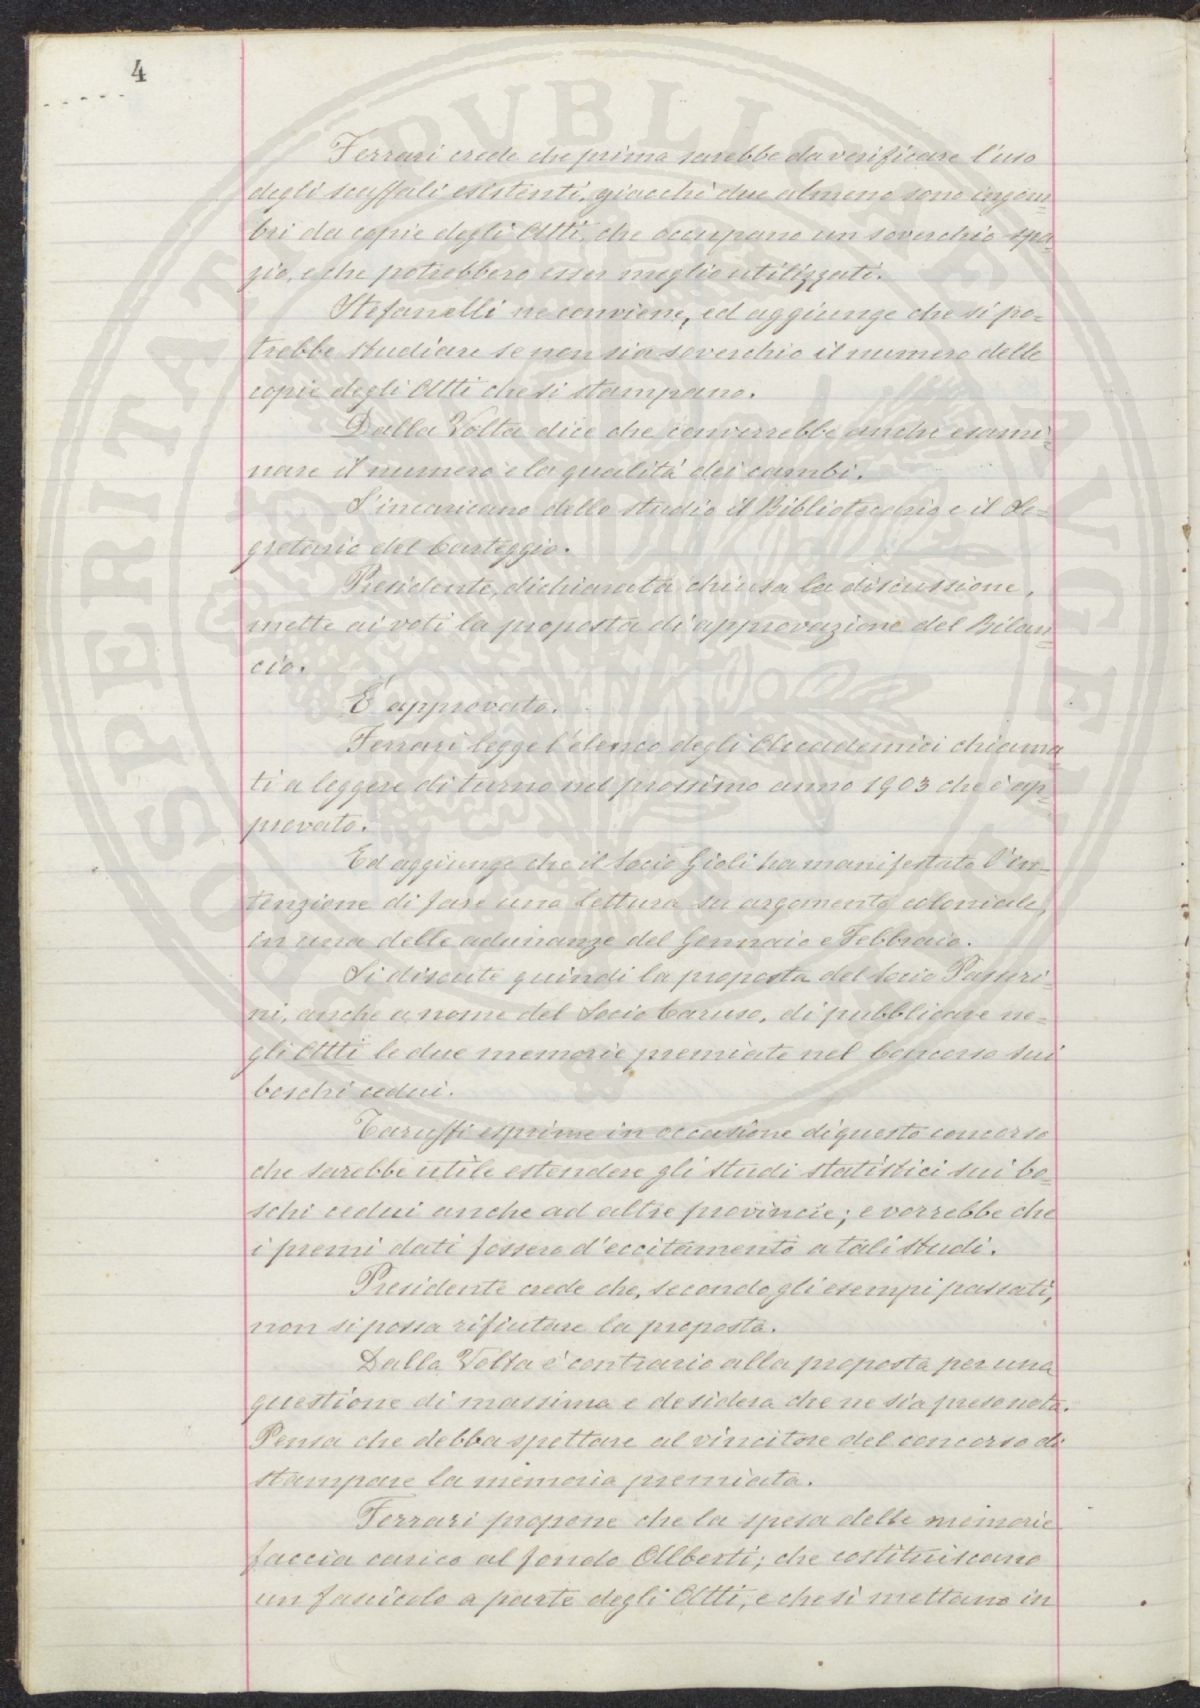 4
Ferrari crede che prima sarebbe da verificare l'uso
degli scaffali esistenti, giacchè due almeno sono ingom=
bri da copie degli Atti, che occupano un soverchio spa
zio, e che potrebbero esser meglio utilizzati.
Stefanelli ne conviene, ed aggiunge che si po=
trebbe studiare se non sia soverchio il numero delle
copie degli Atti che si stampano.
Dalla Volta dice che converrebbe anche esami=
nare il numero e la qualità dei cambi.
S'incaricano dello studio il Bibliotecario e il Se=
gretario del Carteggio.
Presidente, dichiarata chiusa la discussione,
mette ai voti la proposta di approvazione del Bilan=
cio.
È approvato.
Ferrari legge l'elenco degli Accademici chiama
ti a leggere di turno nel prossimo anno 1903 che è ap=
provato.
Ed aggiunge che il Socio Gioli ha manifestato l'in=
tenzione di fare una lettura su argomento coloniale,
in una delle adunanze del Gennaio e Febbraio.
Si discute quindi la proposta del Socio Passeri=
ni, anche a nome del Socio Caruso, di pubblicare ne=
gli Atti le due memorie premiate nel Concorso sui
boschi cedui.
Taruffi esprime in occasione di questo concorso
che sarebbe utile estendere gli studi statistici sui bo=
schi cedui anche ad altre provincie; e vorrebbe che
i premi dati fossero d'eccitamento a tali studi.
Presidente crede che, secondo gli esempi passati,
non si possa rifiutare la proposta.
Dalla Volta è contrario alla proposta per una
questione di massima e desidera che ne sia preso nota.
Pensa che debba spettare al vincitore del concorso di
stampare la memoria premiata.
Ferrari propone che la spesa delle memorie
faccia carico al fondo Alberti; che costituiscano
un fascicolo a parte degli Atti, e che si mettano in
PROSPERITATI PVBLICAE AVGENDAE